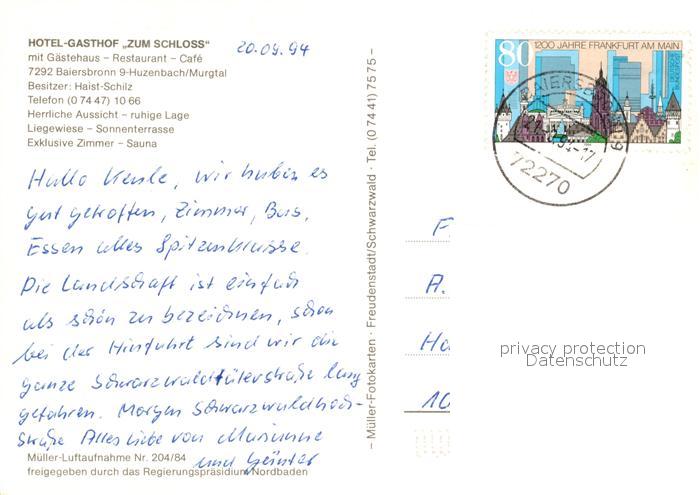 HOTEL-GASTHOF „ZUM SCHLOSS"
mit Gästehaus – Restaurant – Café
7292 Baiersbronn 9-Huzenbach/Murgtal
Besitzer: Haist-Schilz
Telefon (0 74 47) 10 66
Herrliche Aussicht – ruhige Lage
Liegewiese – Sonnenterrasse
Exklusive Zimmer – Sauna
20.09.94
Hallo wir haben es
gut getroffen, Zimmer, Bus,
Essen alles Spitzenklasse.
Die Landschaft ist einfach
als schön zu bezeichnen, schon
bei der Hinfahrt sind wir die
ganze Schwarzwaldtälerstraße lang
gefahren. Morgen Schwarzwaldhoch-
straße Alles liebe von Marianne
und Günter
Müller-Luftaufnahme Nr. 204/84
freigegeben durch das Regierungspräsidium Nordbaden
– Müller-Fotokarten · Freudenstadt/Schwarzwald · Tel. (0 74 41) 75 75 –
80 1200 JAHRE FRANKFURT AM MAIN
DEUTSCHE BUNDESPOST
72270
F
A.
Ha
10
privacy protection
Datenschutz